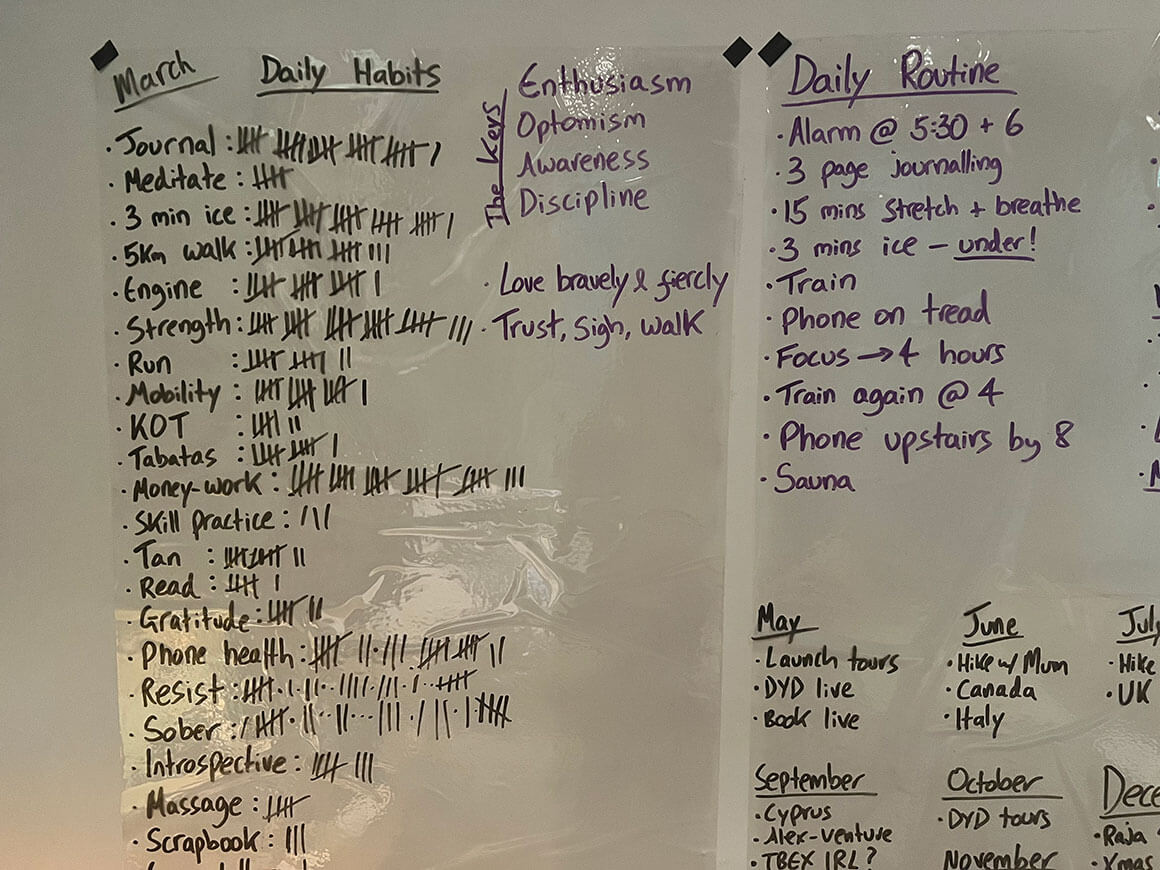 March Daily Habits
· Journal :
· Meditate :
· 3 min ice :
· 5Km walk :
· Engine :
· Strength :
· Run :
· Mobility :
· KOT :
· Tabatas :
· Money-work :
· Skill practice :
· Tan :
· Read :
· Gratitude :
· Phone health :
· Resist :
· Sober :
· Introspective :
· Massage :
· Scrapbook :
The Keys
Enthusiasm
Optomism
Awareness
Discipline
· Love bravely & fiercly
· Trust, Sigh, walk
Daily Routine
· Alarm @ 5:30 + 6
· 3 page journalling
· 15 mins stretch + breathe
· 3 mins ice – under!
· Train
· Phone on tread
· Focus → 4 hours
· Train again @ 4
· Phone upstairs by 8
· Sauna
May
· Launch tours
· DYD live
· Book live
June
· Hike w/ Mum
· Canada
· Italy
July
· Hike
· UK
September
· Cyprus
· Alex-venture
· TBEX IRL?
October
· DYD tours
November
Dece
· Raja
· Xmas